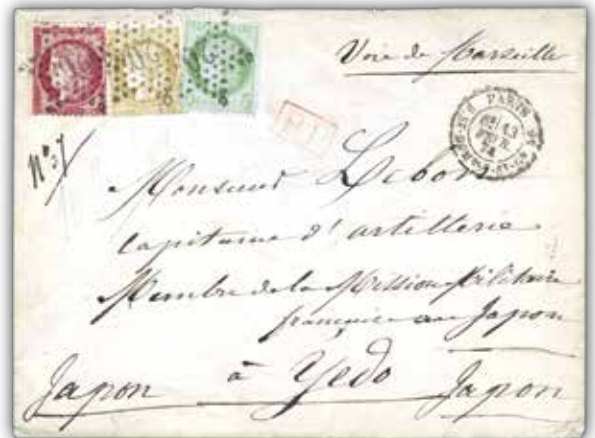 Voie de Marseille
P.D.
PARIS
13
FEVR.
74
N° 37
Monsieur Lebon
Capitaine d'artillerie
Membre de la Mission Militaire
française au Japon
à Yedo
Japon Japon